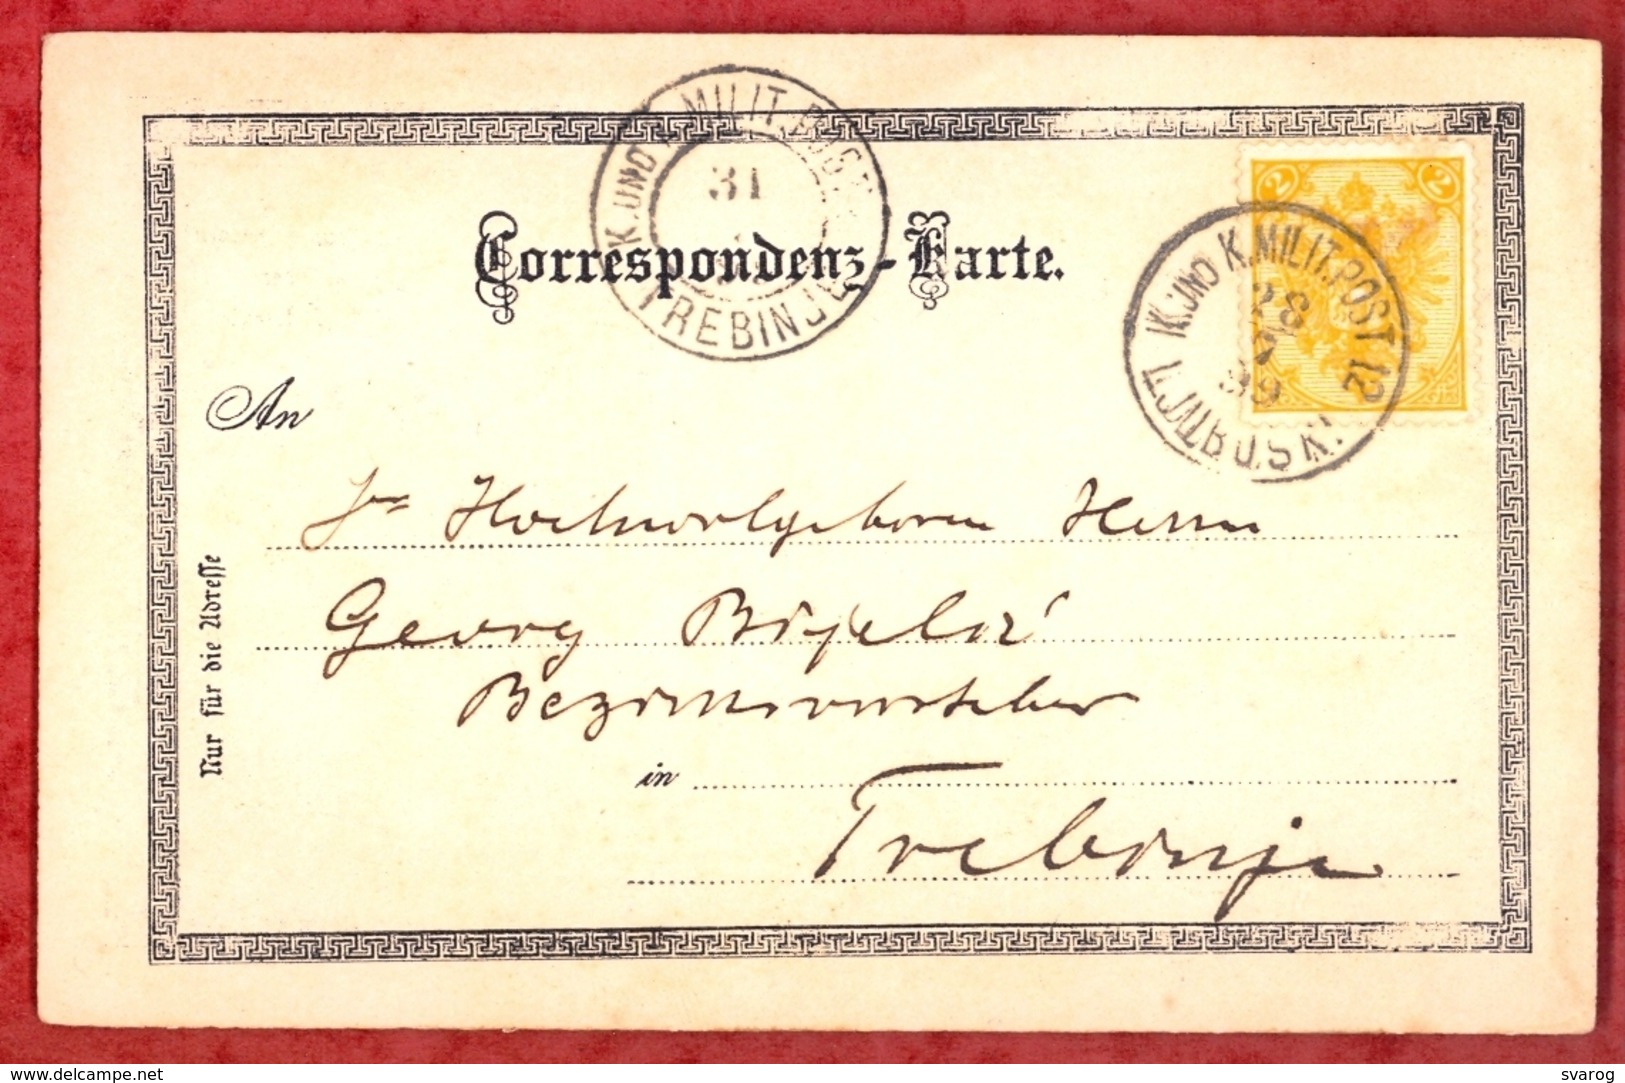 K. UND K. MILIT. POST
31
TREBINJE
Correspondenz-Karte.
2 2
K. UND K. MILIT. POST 12
28
7
99
LJUBUSKI
An
Sr Hochwolgeboren Herrn
Georg Bijelić
Bezirksvorsteher
in
Trebinje
Nur für die Adresse
svarog
delcampe.net